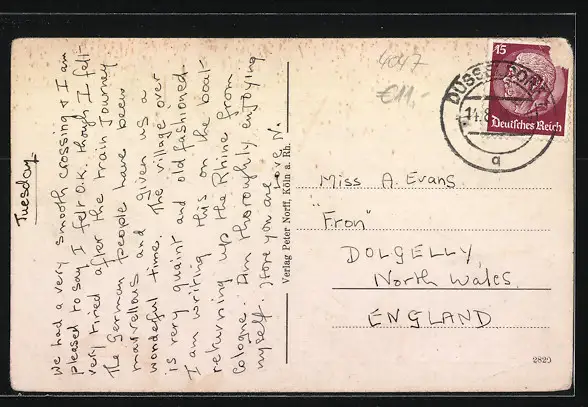 Tuesday
We had a very smooth crossing & I am
pleased to say I felt O.K. though I felt
very tired after the train journey
The German people have been
marvellous and given us a
wonderful time. The village over
is very quaint and old fashioned.
I am writing this on the boat
returning up the Rhine from
Cologne. Am thoroughly enjoying
myself. Hope you are
Love, N.
Verlag Peter Norff, Köln a. Rh.
4047
€11,-
15
DÜSSELDORF
14.8
q
Deutsches Reich
Miss A. Evans.
"Fron"
DOLGELLY,
North Wales.
ENGLAND
2829